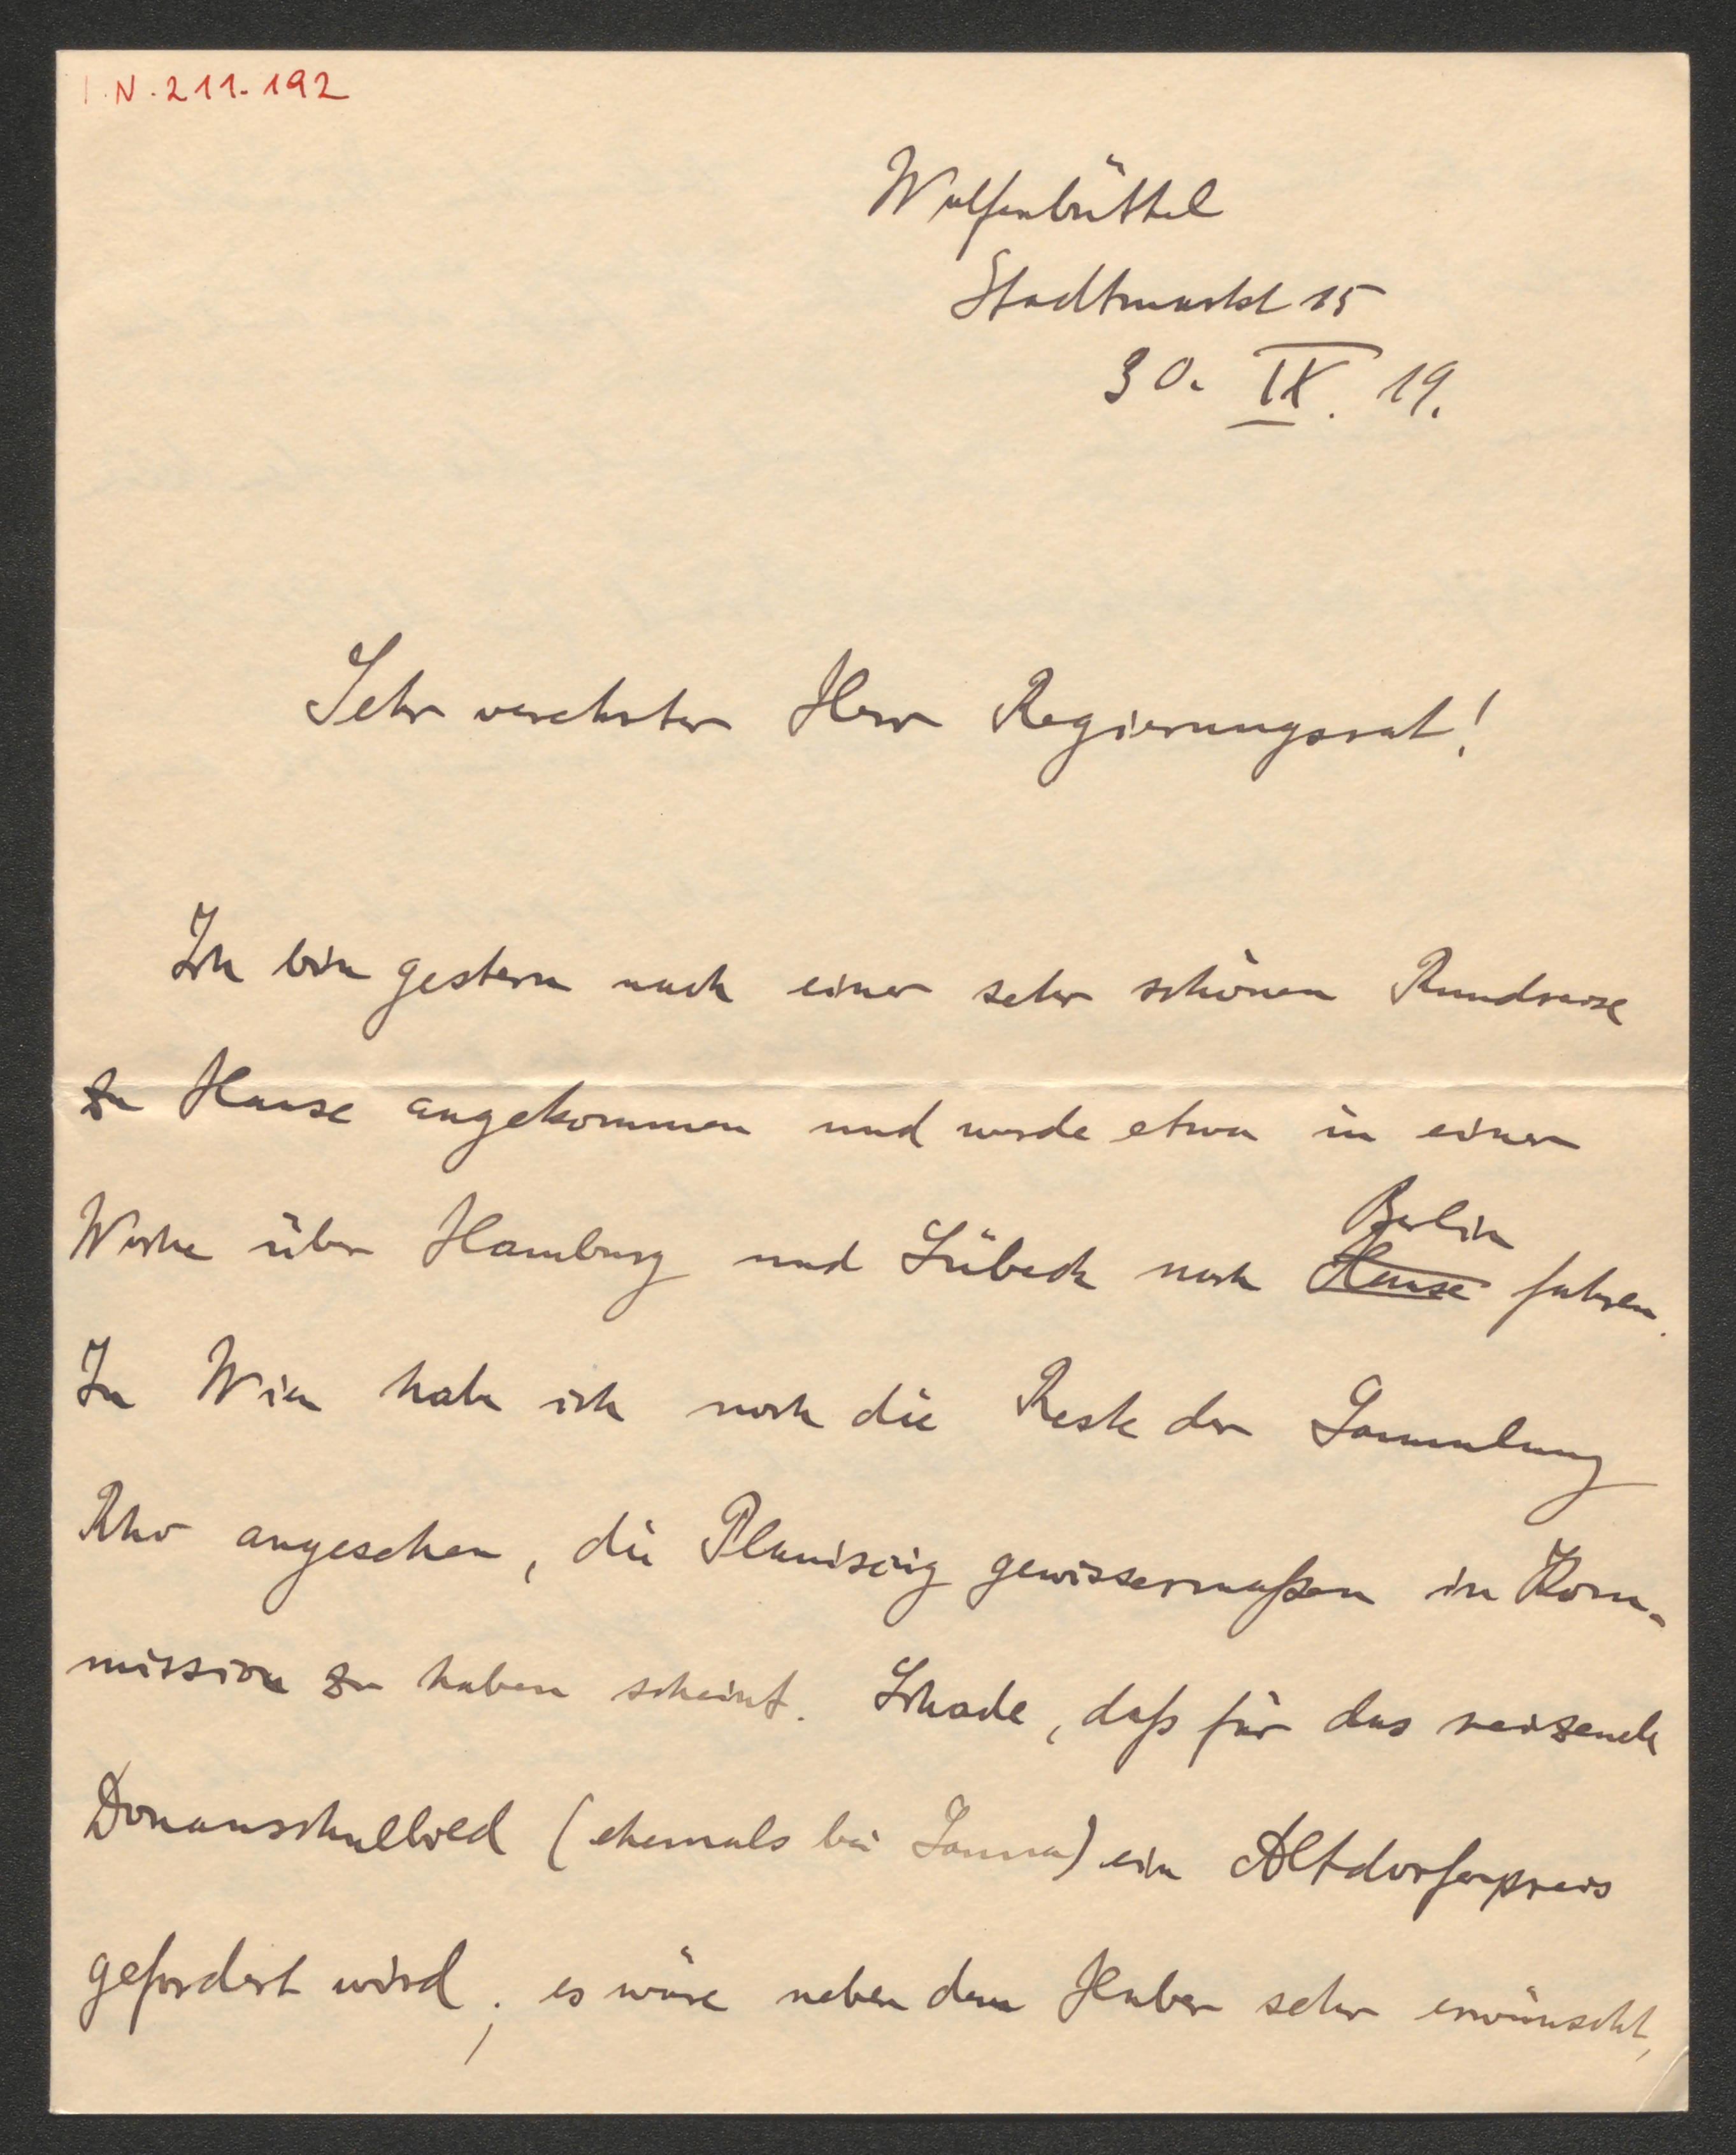 I.N. 211.192
Wolfenbüttel
Stadtmarkt 15
30. IX. 19.
Sehr verehrter Herr Regierungsrat!
Ich bin gestern nach einer sehr schönen Rundreise
zu Hause angekommen und werde etwa in einer
Berlin
Woche über Hamburg und Lübeck nach Hause fahren.
In Wien habe ich noch die Reste der Sammlung
Rho angesehen, die Planiscig gewissermaßen in Kom-
mission zu haben scheint. Schade, daß für das reizende
Donauschulbild (ehemals bei Lanna) ein Altdorferpreis
gefordert wird; es wäre neben dem Huber sehr erwünscht,